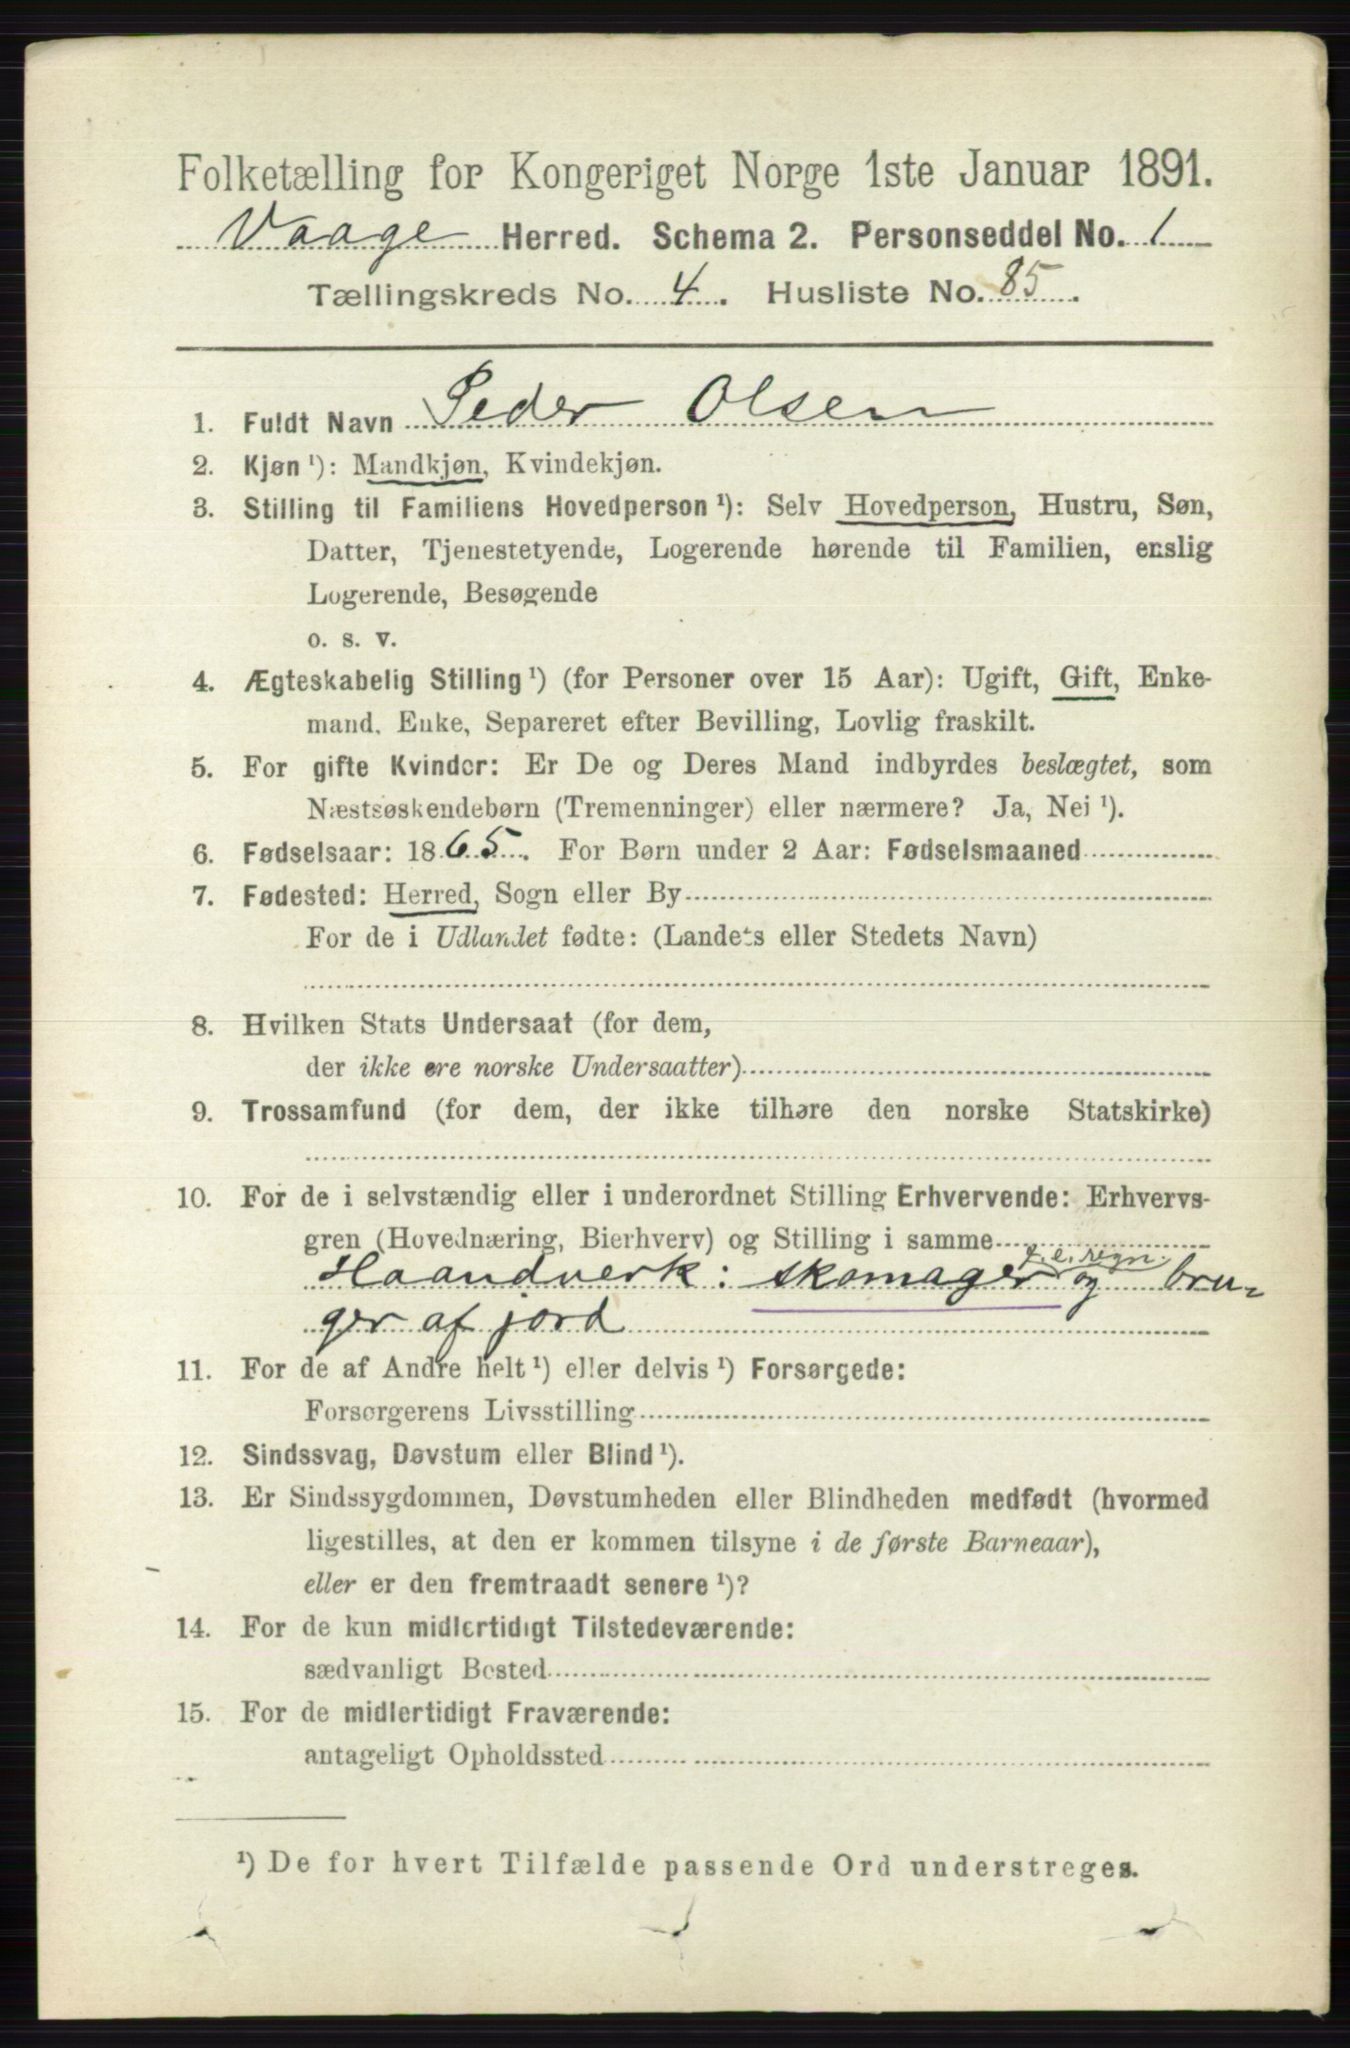 Folketælling for Kongeriget Norge 1ste Januar 1891.
Vaage Herred. Schema 2. Personseddel No. 1
Tællingskreds No. 4. Husliste No. 85.
1. Fuldt Navn Peder Olsen
2. Kjøn ¹): Mandkjøn, Kvindekjøn.
3. Stilling til Familiens Hovedperson ¹): Selv Hovedperson, Hustru, Søn,
Datter, Tjenestetyende, Logerende hørende til Familien, enslig
Logerende, Besøgende
o. s. v.
4. Ægteskabelig Stilling ¹) (for Personer over 15 Aar): Ugift, Gift, Enke-
mand, Enke, Separeret efter Bevilling, Lovlig fraskilt.
5. For gifte Kvinder: Er De og Deres Mand indbyrdes beslægtet, som
Næstsøskendebørn (Tremenninger) eller nærmere? Ja, Nei ¹).
6. Fødselsaar: 1865. For Børn under 2 Aar: Fødselsmaaned
7. Fødested: Herred, Sogn eller By
For de i Udlandet fødte: (Landets eller Stedets Navn)
8. Hvilken Stats Undersaat (for dem,
der ikke ere norske Undersaatter)
9. Trossamfund (for dem, der ikke tilhøre den norske Statskirke)
10. For de i selvstændig eller i underordnet Stilling Erhvervende: Erhvervs-
gren (Hovednæring, Bierhverv) og Stilling i samme
f. e. regn.
Haandverk: skomager og bru-
ger af jord
11. For de af Andre helt ¹) eller delvis ¹) Forsørgede:
Forsørgerens Livsstilling
12. Sindssvag, Døvstum eller Blind ¹).
13. Er Sindssygdommen, Døvstumheden eller Blindheden medfødt (hvormed
ligestilles, at den er kommen tilsyne i de første Barneaar),
eller er den fremtraadt senere ¹)?
14. For de kun midlertidigt Tilstedeværende:
sædvanligt Bosted
15. For de midlertidigt Fraværende:
antageligt Opholdssted
¹) De for hvert Tilfælde passende Ord understreges.